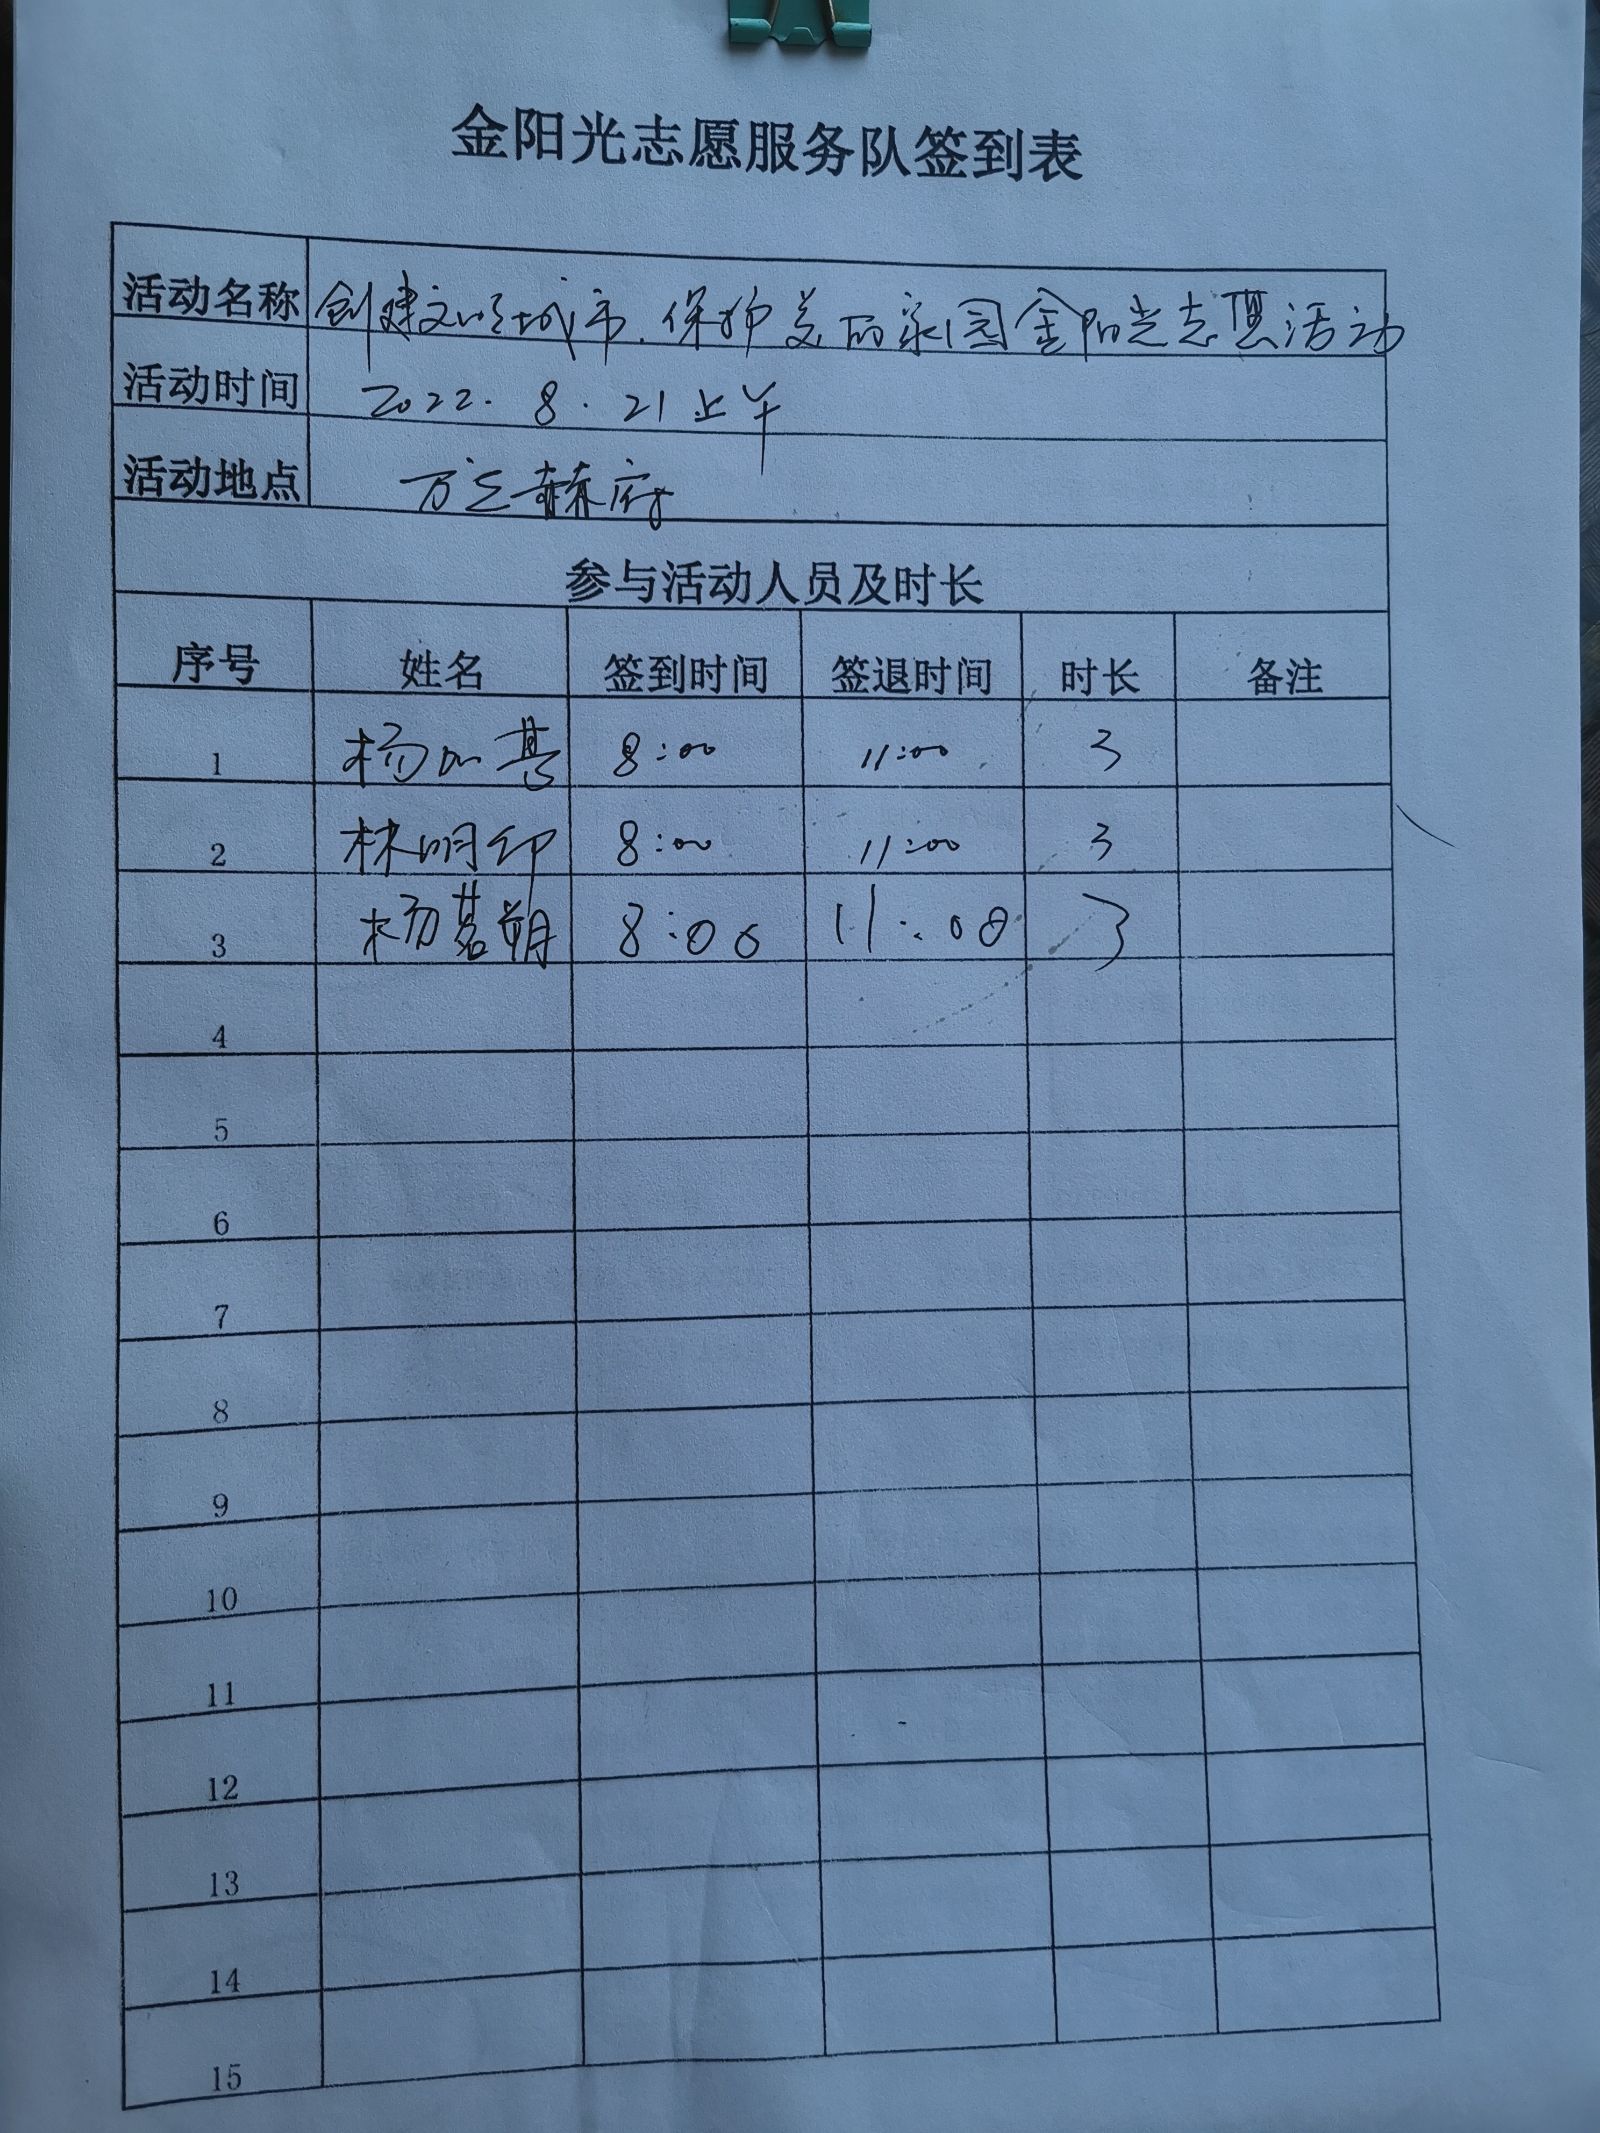 金阳光志愿服务队签到表
活动名称 创建文明城市.保护美丽家园金阳光志愿活动
活动时间 2022.8.21上午
活动地点 万立赫府
参与活动人员及时长
序号 姓名 签到时间 签退时间 时长 备注
1 杨 8:00 11:00 3
2 林明印 8:00 11:00 3
3 杨茗朔 8:00 11:00 3
4
5
6
7
8
9
10
11
12
13
14
15